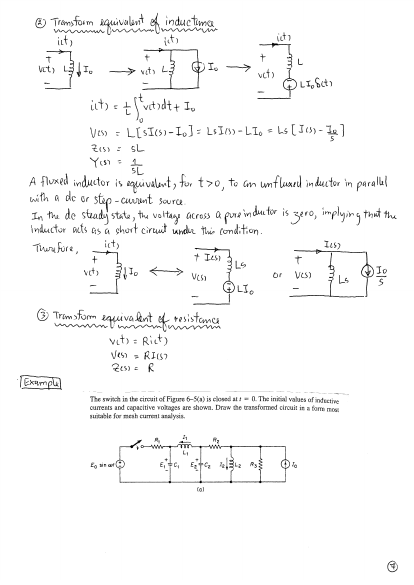 ② Transform equivalent of inductance
i(t) i(t) i(t)
+ v(t) - L I₀ → + v(t) - L I₀ → + v(t) - L L I₀ δ(t)
i(t) = 1/L ∫₀ᵗ v(t)dt + I₀
V(s) = L[sI(s) - I₀] = LsI(s) - LI₀ = Ls [I(s) - I₀/s]
Z(s) = sL
Y(s) = 1/sL
A fluxed inductor is equivalent, for t>0, to an unfluxed inductor in parallel
with a dc or step-current source.
In the dc steady state, the voltage across a pure inductor is zero, implying that the
inductor acts as a short circuit under this condition.
Therefore, i(t) I(s) I(s)
+ v(t) - L I₀ ↔ + V(s) - Ls LI₀ or + V(s) - Ls I₀/s
③ Transform equivalent of resistance
v(t) = Ri(t)
V(s) = RI(s)
Z(s) = R
Example
The switch in the circuit of Figure 6–5(a) is closed at t = 0. The initial values of inductive
currents and capacitive voltages are shown. Draw the transformed circuit in a form most
suitable for mesh current analysis.
R₁ I₁ L₁ R₂
E₀ sin ωt E₁ + - C₁ E₂ + - C₂ I₂ L₂ R₃ I₀
(a)
7